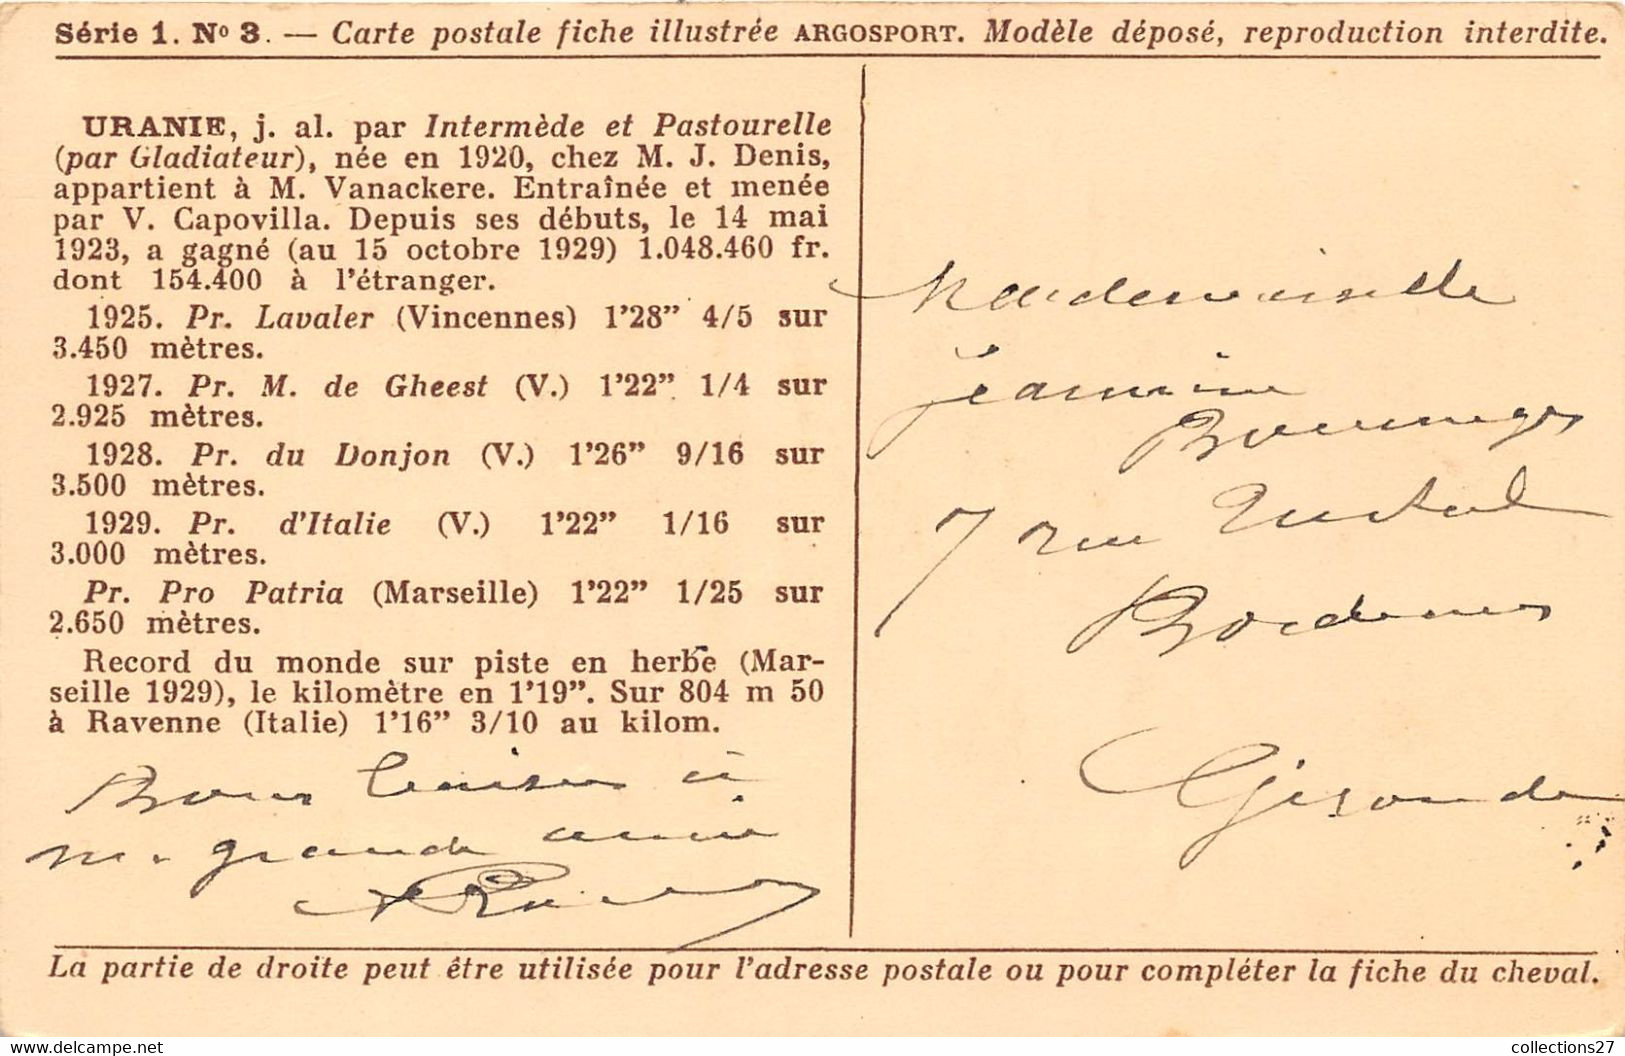 Série 1. Nº 3. — Carte postale fiche illustrée ARGOSPORT. Modèle déposé, reproduction interdite.
URANIE, j. al. par Intermède et Pastourelle
(par Gladiateur), née en 1920, chez M. J. Denis,
appartient à M. Vanackere. Entraînée et menée
par V. Capovilla. Depuis ses débuts, le 14 mai
1923, a gagné (au 15 octobre 1929) 1.048.460 fr.
dont 154.400 à l'étranger.
1925. Pr. Lavaler (Vincennes) 1'28" 4/5 sur
3.450 mètres.
1927. Pr. M. de Gheest (V.) 1'22" 1/4 sur
2.925 mètres.
1928. Pr. du Donjon (V.) 1'26" 9/16 sur
3.500 mètres.
1929. Pr. d'Italie (V.) 1'22" 1/16 sur
3.000 mètres.
Pr. Pro Patria (Marseille) 1'22" 1/25 sur
2.650 mètres.
Record du monde sur piste en herbe (Mar-
seille 1929), le kilomètre en 1'19". Sur 804 m 50
à Ravenne (Italie) 1'16" 3/10 au kilom.
Bons baisers à
ma grande amie
Mademoiselle
Jeannine
7 rue
Bordeaux
Gironde
La partie de droite peut être utilisée pour l'adresse postale ou pour compléter la fiche du cheval.
collections27